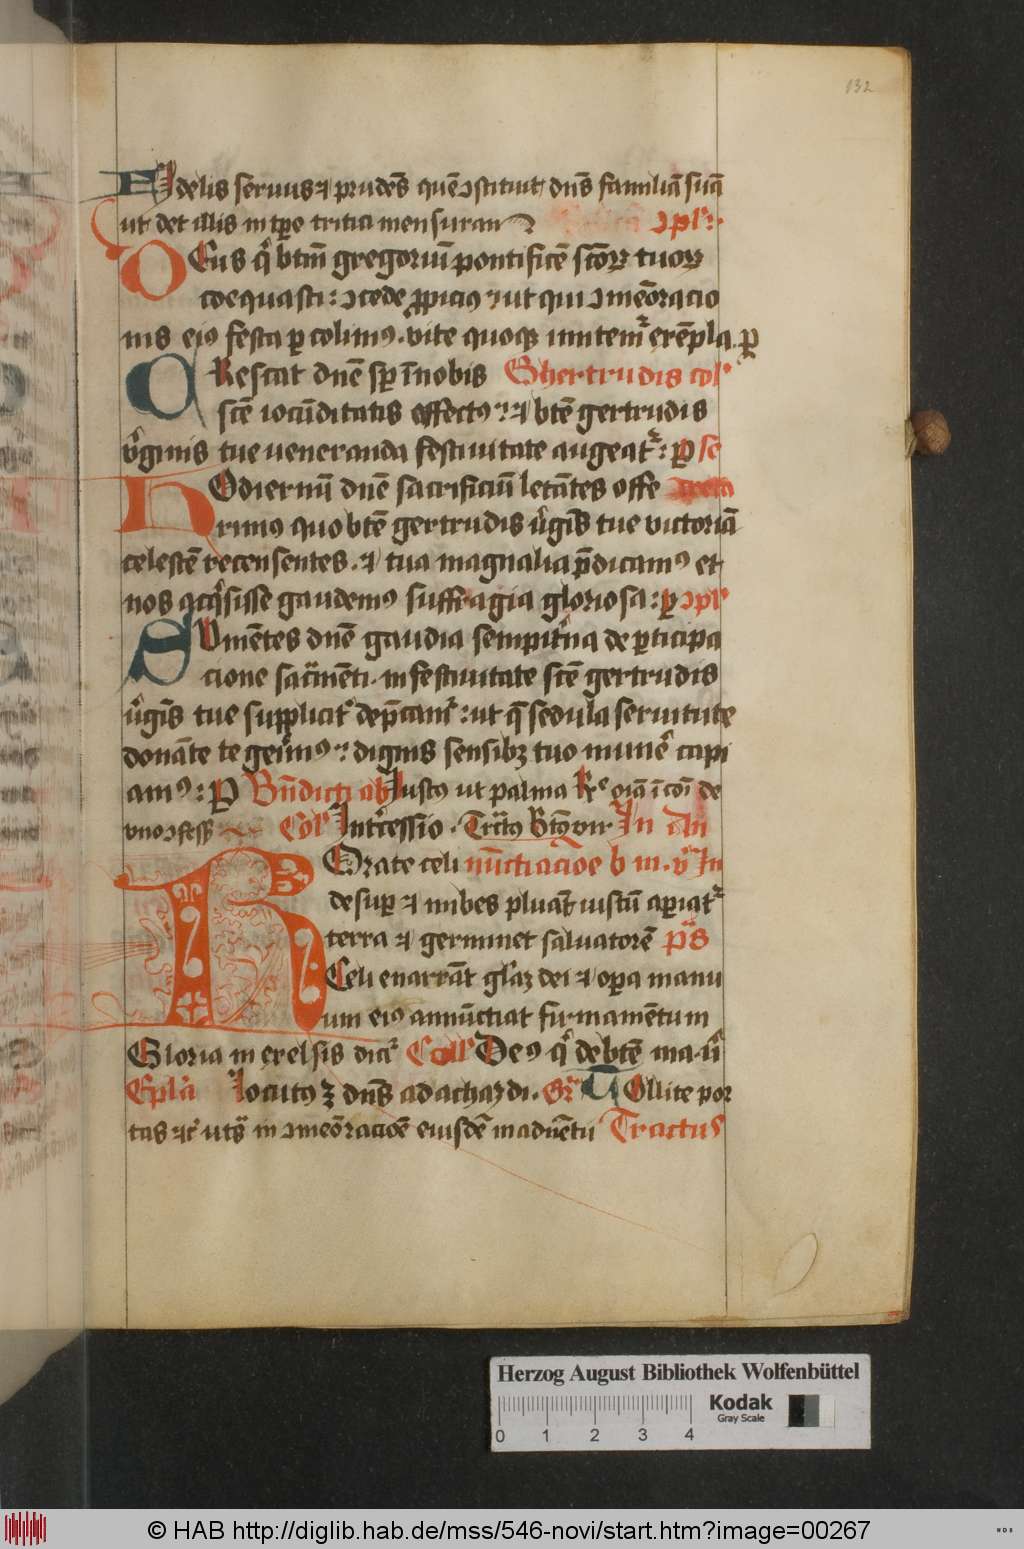 132
Fidelis seruus ⁊ prudēs quē ↄstituit dn̄s familiā suā
ut det illis in tp̄e tritici mensuram ↄpl̉
DEus q̉ btm̄ gregoriū pontificē sctōꝝ tuoꝝ
coequasti : ↄcede ꝓpicius ut qui ↄmēoracio
nis eiꝰ festa ꝑcolimꝰ . vite quoqꝫ imitem̉ exēpla . ꝑ
CRescat dn̄e sꝑ ī nobis Ghertrudis col̉
scē iocūditatis effectꝰ : ⁊ btē gertrudis
v̉ginis tue ueneranda festiuitate augeat̉ : ꝑ se
HOdiernū dn̄e sacrificiū letātes offe creta
rimus quo btē gertrudis v̉gīs tue victoriā
celestē recensentes . ⁊ tua magnalia p̄dicamꝰ et
nos acq̉sisse gaudemꝰ suffragia gloriosa : ꝑ ↄpl̉
SUmētes dn̄e gaudia sempit̉na de ꝑticipa
cione sac̉mēti . in festiuitate scē gertrudis
v̉gīs tue supplicit̉ dep̄cam̉ : ut q̄ sedula seruitute
donāte te gerim̉ꝰ : dignis sensibꝫ tuo mun̉e capi
amꝰ : P Bn̄dicti ab Justus ut palma R̉ oīa ī cōi de
vno ↄfess̉ Col̉ Int̉cessio . Tractꝰ Btūs vir In An
ROrate celi nūctiacīoe b m . v̉ In
desuꝑ ⁊ nubes pluāt iustū aꝑiat̉
terra ⁊ germinet saluatorē p̄s
Celi enarrāt gl̉iaꝫ dei ⁊ oꝑa manu
um eiꝰ annūctiat firmamētum
Gloria in excelsis dict̉ Coll̉ Deꝰ q̉ de btē ma . v̉
Epl̉a Locutꝰ ꝫ dn̄s ad achaz di . Gr̉ TOllite por
tas ⁊c̉ uts̉ in ↄmēoracioē eiusdē in aduētu Tractus
Herzog August Bibliothek Wolfenbüttel
0 1 2 3 4
Kodak
Gray Scale
© HAB http://diglib.hab.de/mss/546-novi/start.htm?image=00267